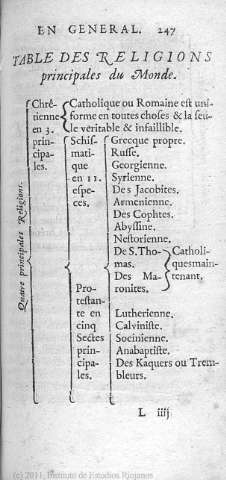 EN GENERAL. 247
TABLE DES RELIGIONS
principales du Monde.
Quatre principales Religions.
Chré-
tienne
en 3.
prin-
cipa-
les.
Catholique ou Romaine est uni-
forme en toutes choses & la seu-
le véritable & infaillible.
Schis-
mati-
que
en 11.
espe-
ces.
Grecque propre.
Russe.
Georgienne.
Syrienne.
Des Jacobites.
Armenienne.
Des Cophtes.
Abyssine.
Nestorienne.
De S. Tho-
mas.
Des Ma-
ronites.
Catholi-
ques main-
tenant.
Pro-
testan-
te en
cinq
Sectes
prin-
cipa-
les.
Lutherienne.
Calviniste.
Socinienne.
Anabaptiste.
Des Kaquers ou Trem-
bleurs.
L iiij
(c) 2011, Instituto de Estudios Riojanos